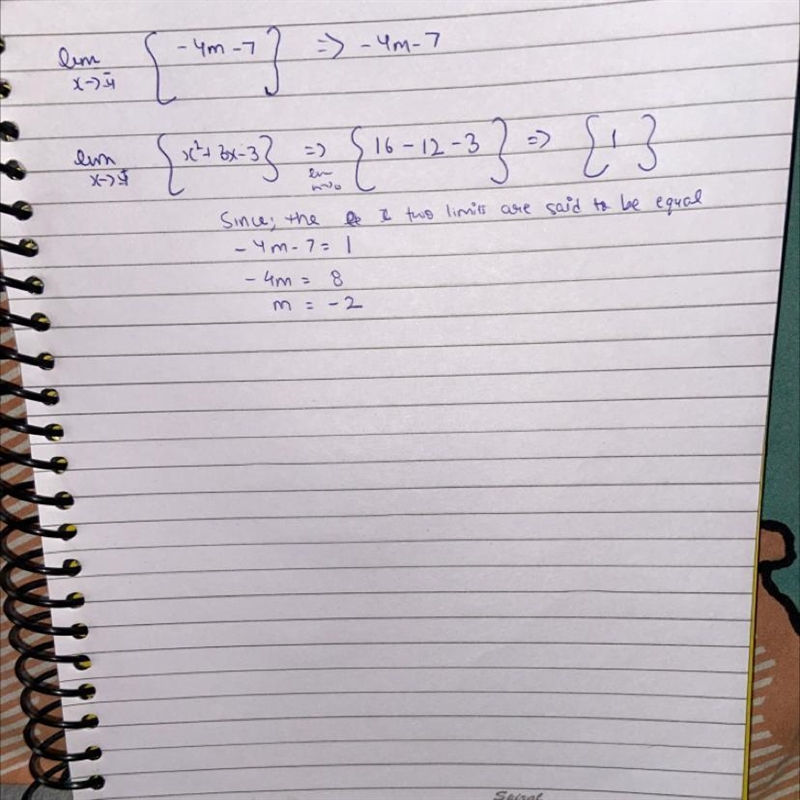 lim x→-4⁻ { -4m - 7 } => -4m - 7
lim x→-4⁺ { x² + 3x - 3 } => lim { 16 - 12 - 3 } => { 1 }
Since, the two limits are said to be equal
-4m - 7 = 1
-4m = 8
m = -2
Spiral